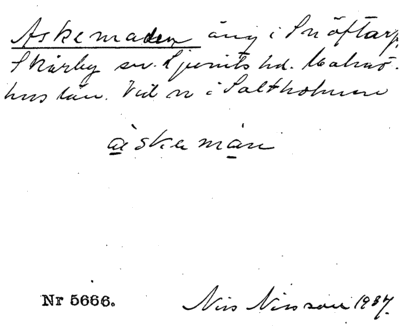 Askemaden äng i Snöftarp,
Skårby sn. Ljunits hd. Malmö-
hus län. Vid n i Saltholmen
àskamàn
Nr 5666. Nils Nilsson 1937.